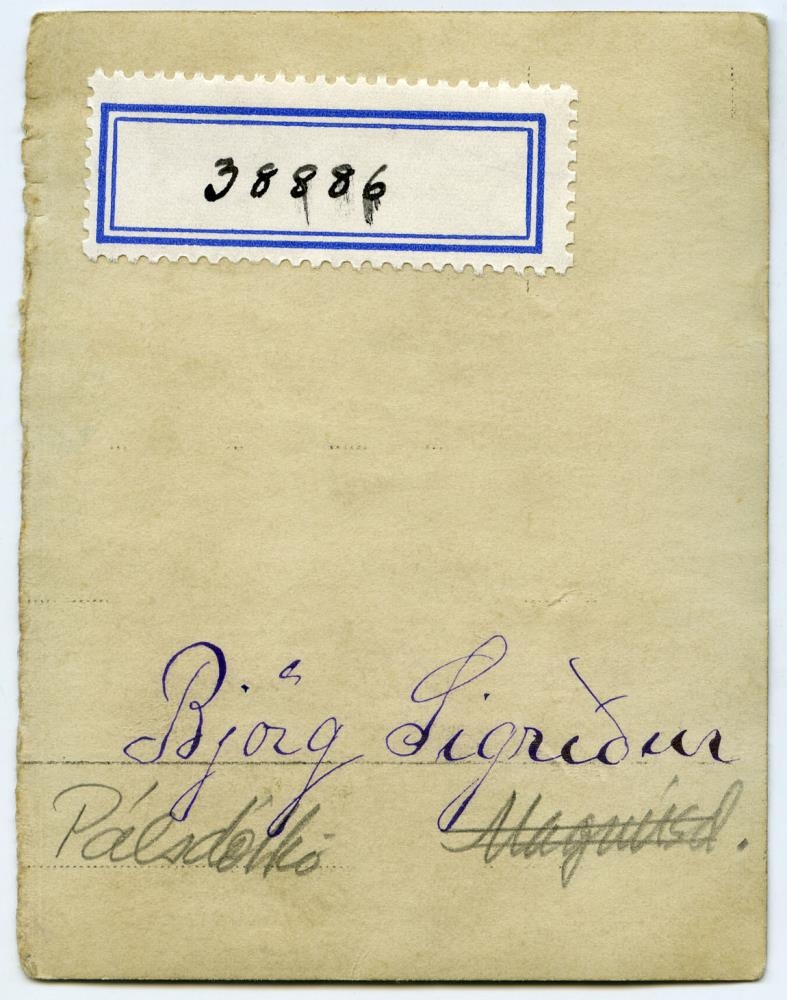 38886
Björg Sigríður
Pálsdóttir Magnúsd.